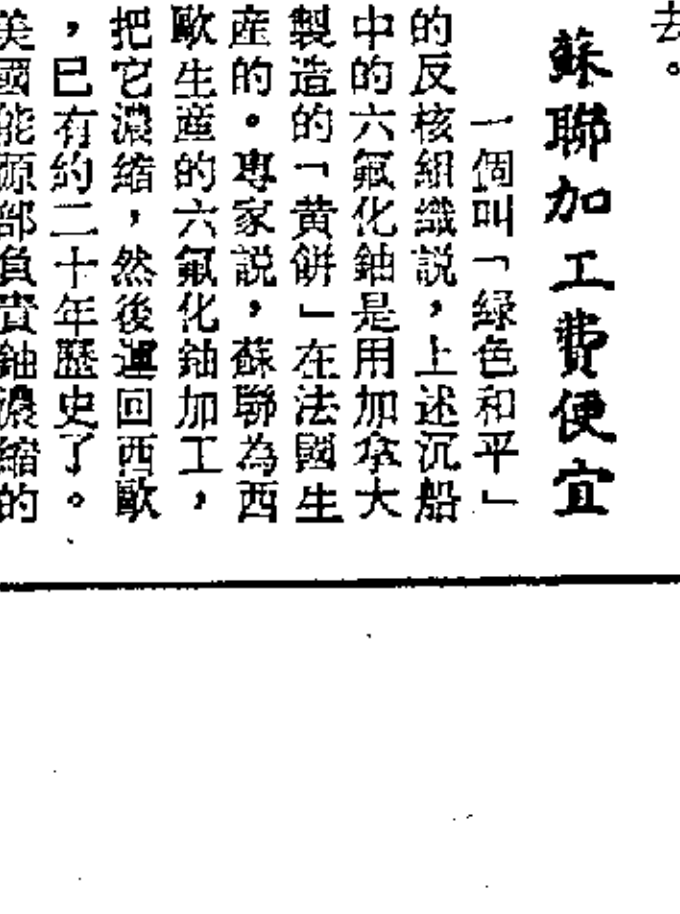 去。
蘇聯加工費便宜
一個叫「綠色和平」
的反核組織説，上述沉船
中的六氟化鈾是用加拿大
製造的「黃餅」在法國生
産的。專家説，蘇聯為西
歐生産的六氟化鈾加工，
把它濃縮，然後運回西歐
，已有約二十年歷史了。
美國能源部負責鈾濃縮的